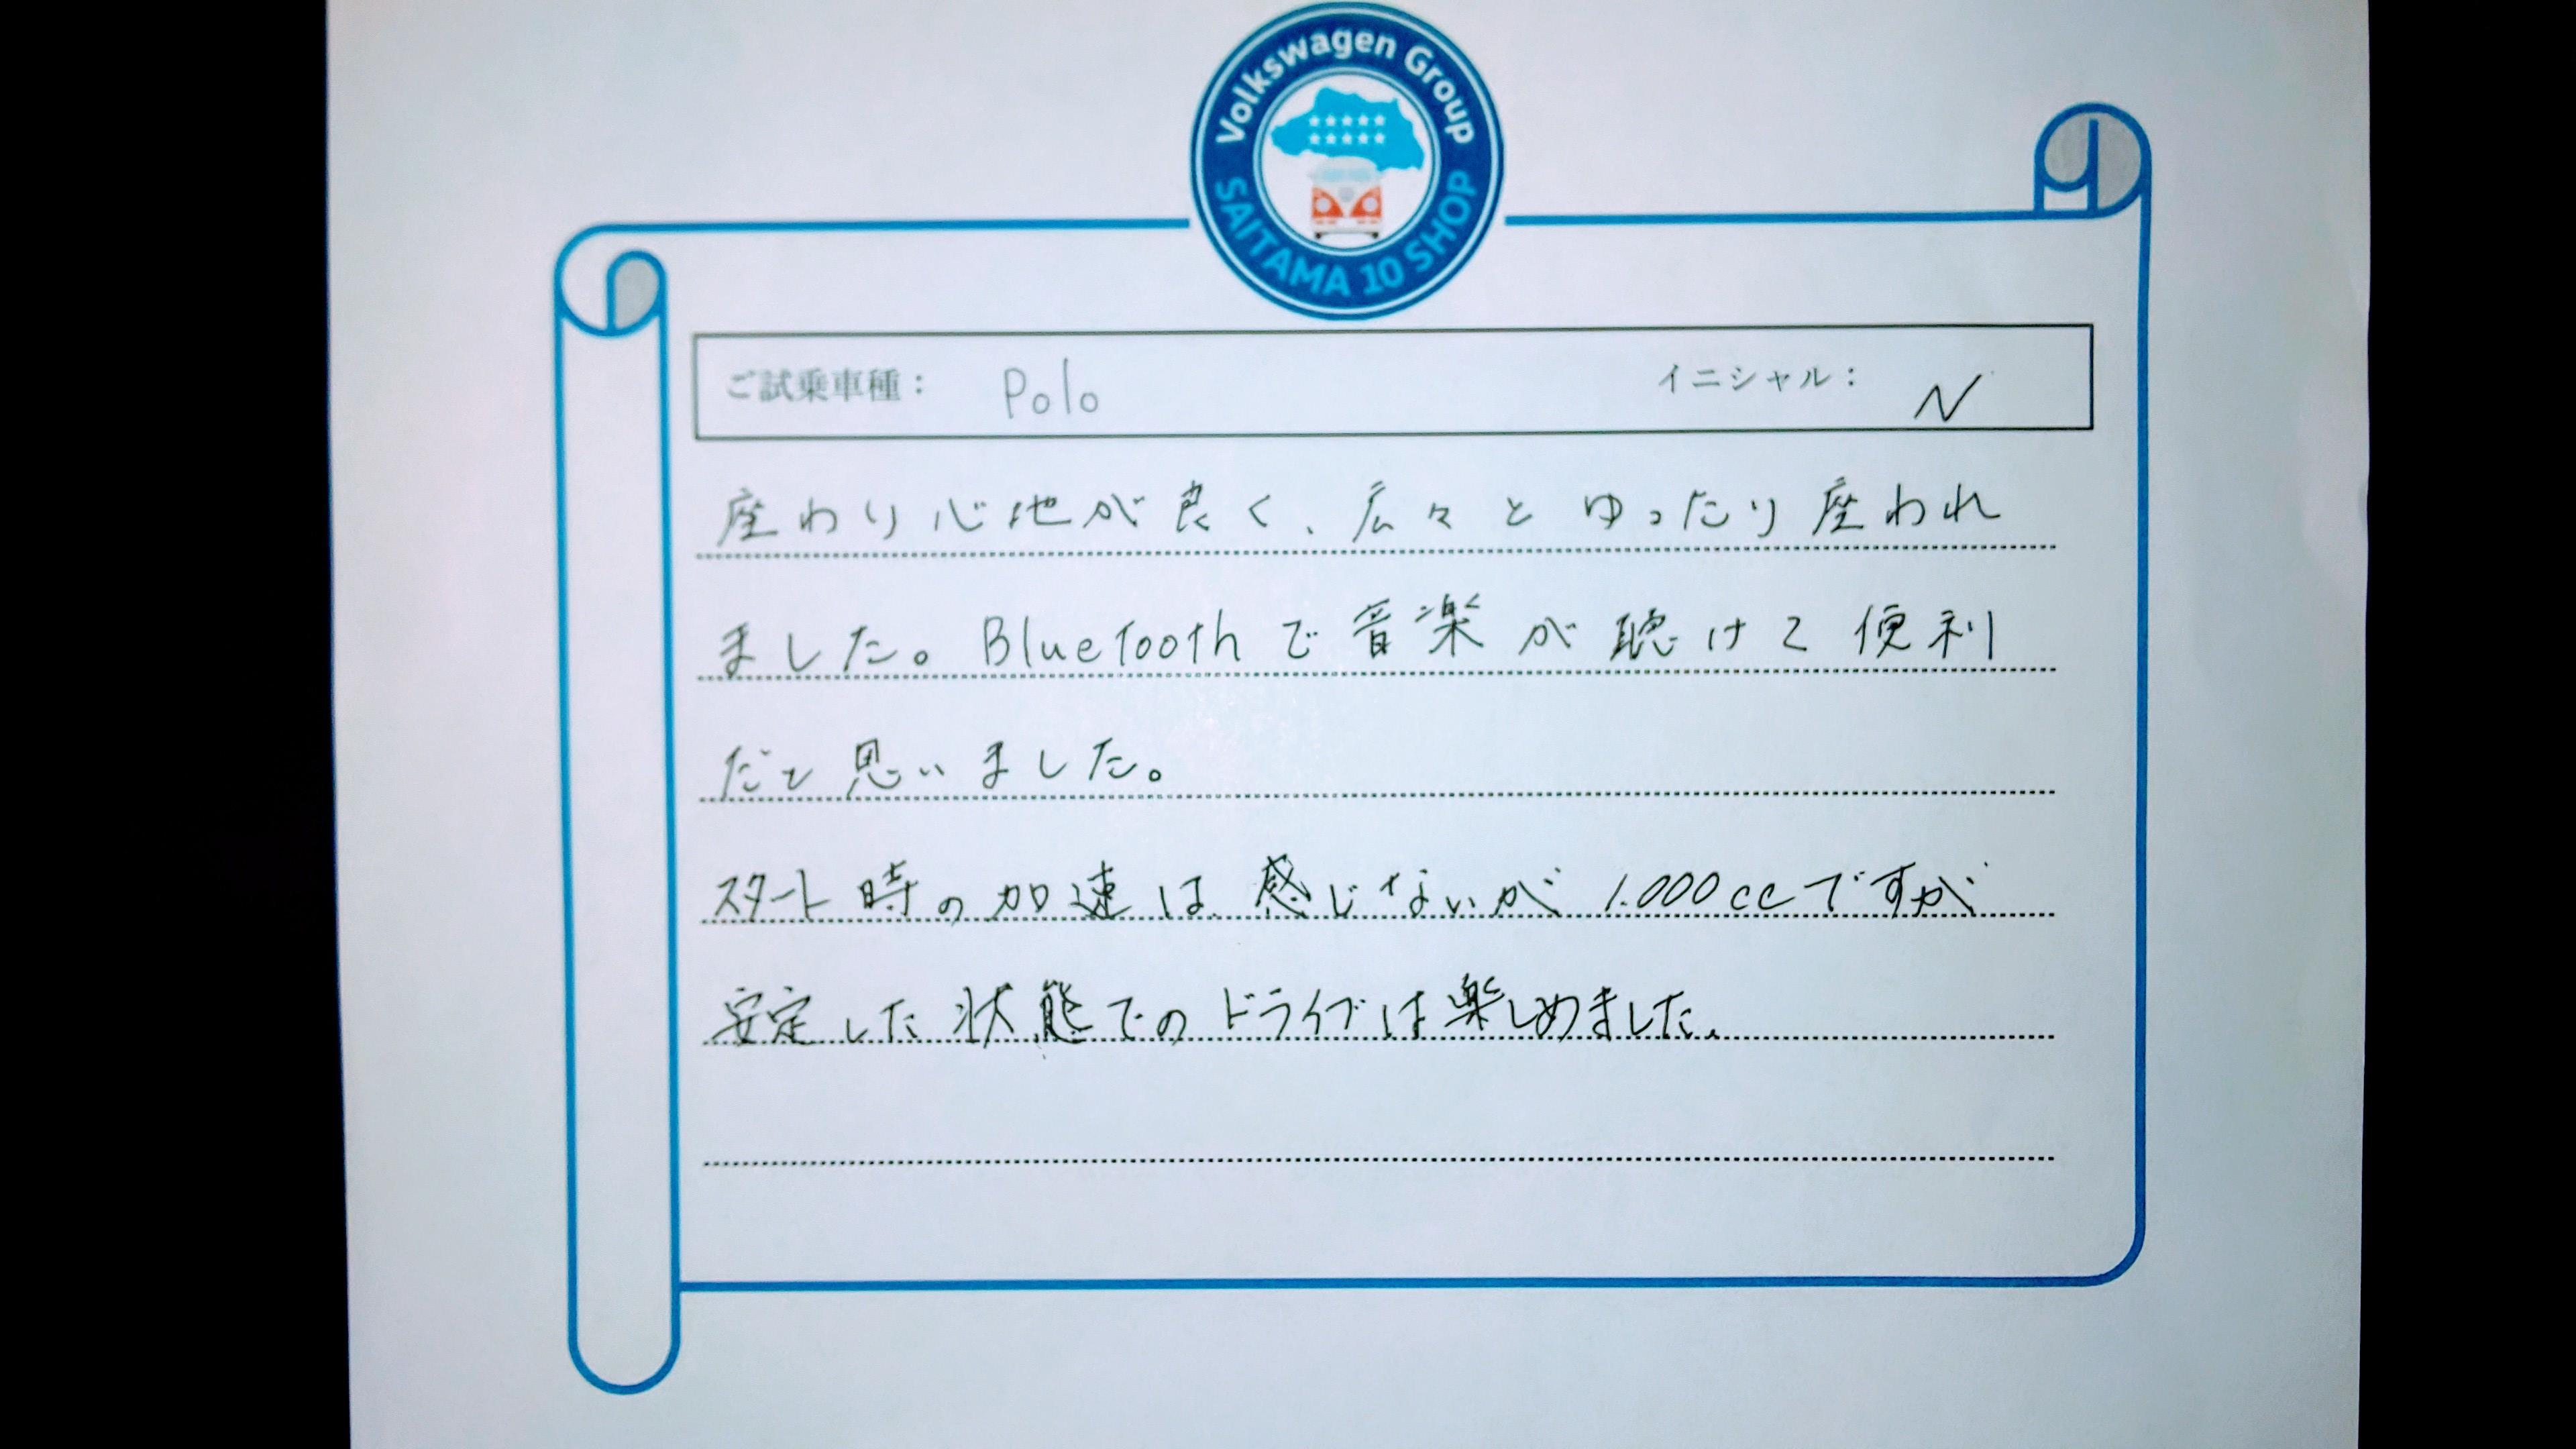 Volkswagen Group
SAITAMA 10 SHOP
ご試乗車種: Polo イニシャル: N
座わり心地が良く、広々とゆったり座われ
ました。Bluetoothで音楽が聴けて便利
だと思いました。
スタート時の加速は感じないが1.000ccですが
安定した状態でのドライブは楽しめました。